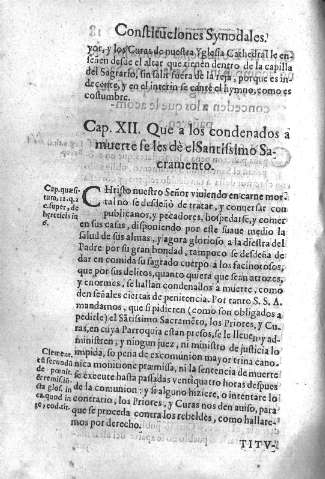 Constituciones Synodales.
yor, y los Curas de nuestra Yglesia Cathedral le en-
seãen desde el altar que tienen dentro de la capilla
del Sagrario, sin salir fuera de la reja, porque es in-
decente, y en el interin se cante el hymno, como es
costumbre.
Cap. XII. Que a los condenados a
muerte se les dè el Santissimo Sa-
cramento.
CHristo nuestro Señor viviendo en carne mor-
tal no se desdeñó de tratar, y conversar con
publicanos, y pecadores, hospedarse, y comer
en sus casas, disponiendo por este suave medio la
salud de sus almas, y agora glorioso a la diestra del
Padre por su gran bondad, tampoco se desdeña de
dar en comida su sagrado cuerpo a los facinorosos,
que por sus delitos, quanto quiera que sean atrozes,
y enormes, se hallan condenados a muerte, como
den señales ciertas de penitencia. Por tanto S. S. A.
mandamos, que si pidieren (como son obligados a
pedirle) el Sãtissimo Sacramẽto, los Priores, y Cu-
ras, en cuya Parroquia estan presos, se le lleven, y ad-
ministren, y ningun juez, ni ministro de justicia lo
impida, so pena de excomunion mayor trina cano-
nica monitione præmissa, ni la sentencia de muerte
se execute hasta passadas ventiquatro horas despues
de la comunion: y se alguno hiziere, o intentare lo
contrario, los Priores, y Curas nos den aviso, para
que se proceda contra los rebeldes, como hallare-
mos por derecho.
Cap. quæsi-
tum, 12. q. 2
hereticis in
6.
TITV-